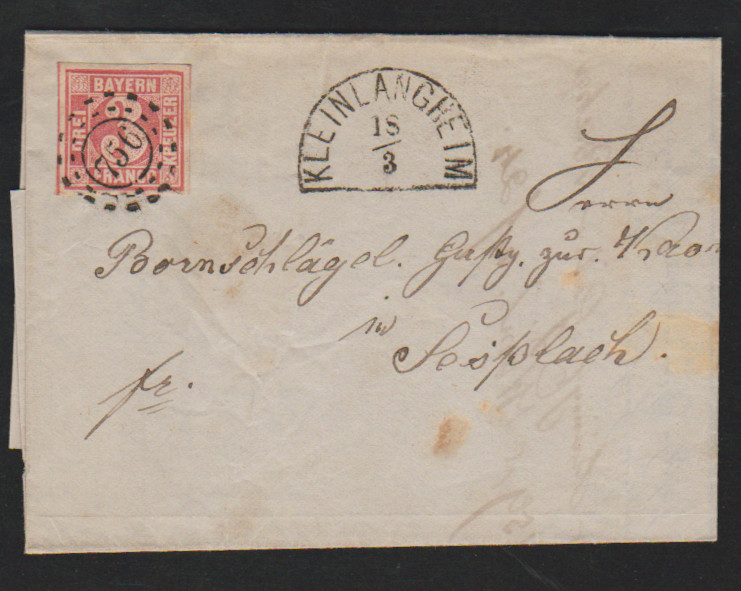 BAYERN
DREI
KREUZER
FRANCO
756
KLEINLANGHEIM
18
3
Herrn
Bornschlägel. Gastg. zur. Kron
in
fr.